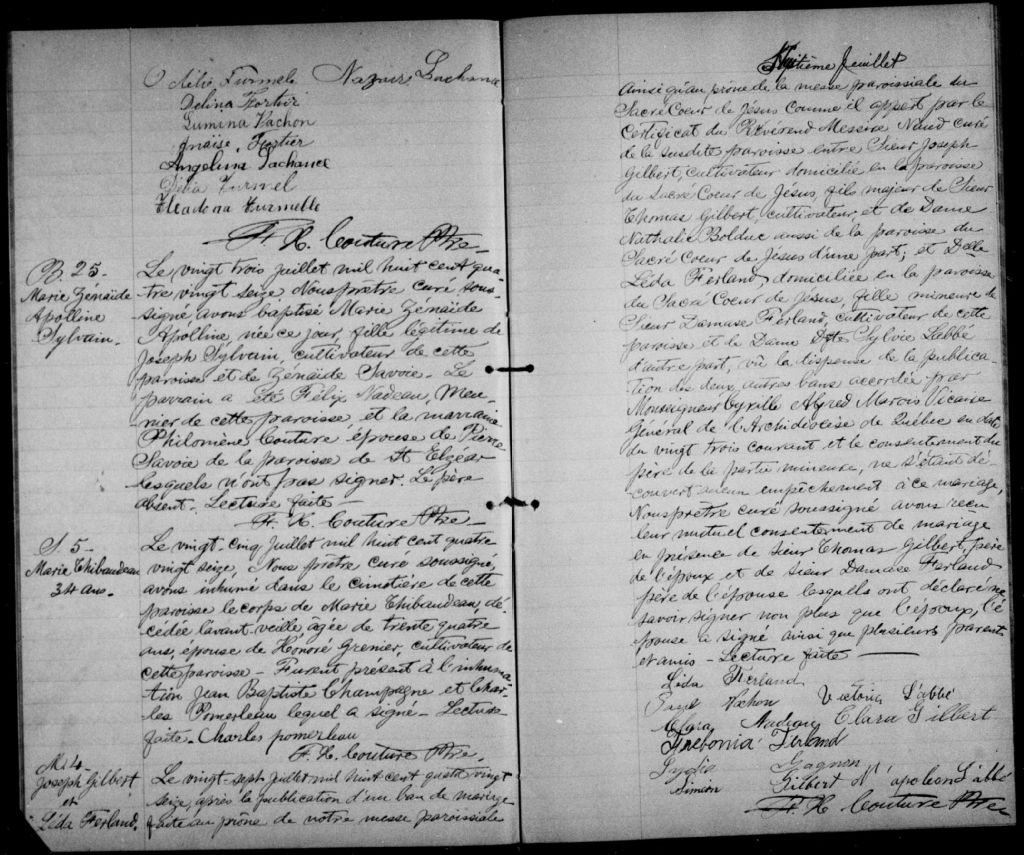 Délia Turmel Nazaire Lachance
Délina Fortier
Lumina Vachon
Anaïse Fortier
Angelina Lachance
Délia Turmel
Turmelle
F. X. Couture Ptre
B. 25.
Marie Zénaïde
Apolline
Sylvain.
Le vingt trois juillet mil huit cent qua
tre vingt seize Nous prêtre curé sous-
signé avons baptisé Marie Zénaïde
Apolline, née ce jour, fille légitime de
Joseph Sylvain, cultivateur de cette
paroisse et de Zénaïde Savoie. Le
parrain a été Félix Nadeau, Meu-
nier de cette paroisse, et la marraine
Philomène Couture épouse de Pierre
Savoie de la paroisse de St Elzéar
lesquels n'ont pas signer. Le père
absent. Lecture faite
F. X. Couture Ptre
S. 5
Marie Thibaudeau
34 ans.
Le vingt-cinq juillet mil huit cent quatre
vingt seize, Nous prêtre curé soussigné,
avons inhumé dans le cimetière de cette
paroisse le corps de Marie Thibaudeau, dé-
cédée l'avant-veille âgée de trente quatre
ans, épouse de Honoré Grenier, cultivateur de
cette paroisse - Furent présent à l'inhuma-
tion Jean Baptiste Champagne et Char-
les Pomerleau lequel a signé - Lecture
faite - Charles pomerleau
F. X. Couture Ptre.
M. 4
Joseph Gilbert
et
Lida Ferland.
Le vingt-sept juillet mil huit cent quatre vingt
seize, après la publication d'un ban de mariage
faite au prône de notre messe paroissiale
Huitième feuillet
ainsi qu'au prône de la messe paroissiale du
Sacré Coeur de Jésus comme il appert par le
certificat du Révérend Messire Naud curé
de la susdite paroisse entre Sieur Joseph
Gilbert, cultivateur domicilié en la paroisse
du Sacré Coeur de Jésus, fils majeur de Sieur
Thomas Gilbert, cultivateur, et de Dame
Nathalie Bolduc aussi de la paroisse du
Sacré Coeur de Jésus d'une part; et Delle
Lida Ferland, domiciliée en la paroisse
du Sacré Coeur de Jésus, fille mineure de
Sieur Damase Ferland, cultivateur de cette
paroisse et de Dame Sylvie Labbé
d'autre part, vû la dispense de la publica-
tion des deux autres bans accordée par
Monseigneur Cyrille Alfred Marois Vicaire
Général de l'Archidiocèse de Québec en date
du vingt trois courant et le consentement du
père de la partie mineure, ne s'étant dé-
couvert aucun empêchement à ce mariage,
Nous prêtre curé soussigné avons reçu
leur mutuel consentement de mariage
en présence de Sieur Thomas Gilbert, père
de l'époux et de sieur Damase Ferland
père de l'épouse lesquels ont déclaré ne
savoir signer non plus que l'époux, l'é-
pouse a signé ainsi que plusieurs parents
et amis - Lecture faite
Lida Ferland
Vachon Victoria Labbé
Nadeau Clara Gilbert
Ferland
Lydia Gagnon
Siméon Gilbert Napoléon Labbé
F. X. Couture Ptre